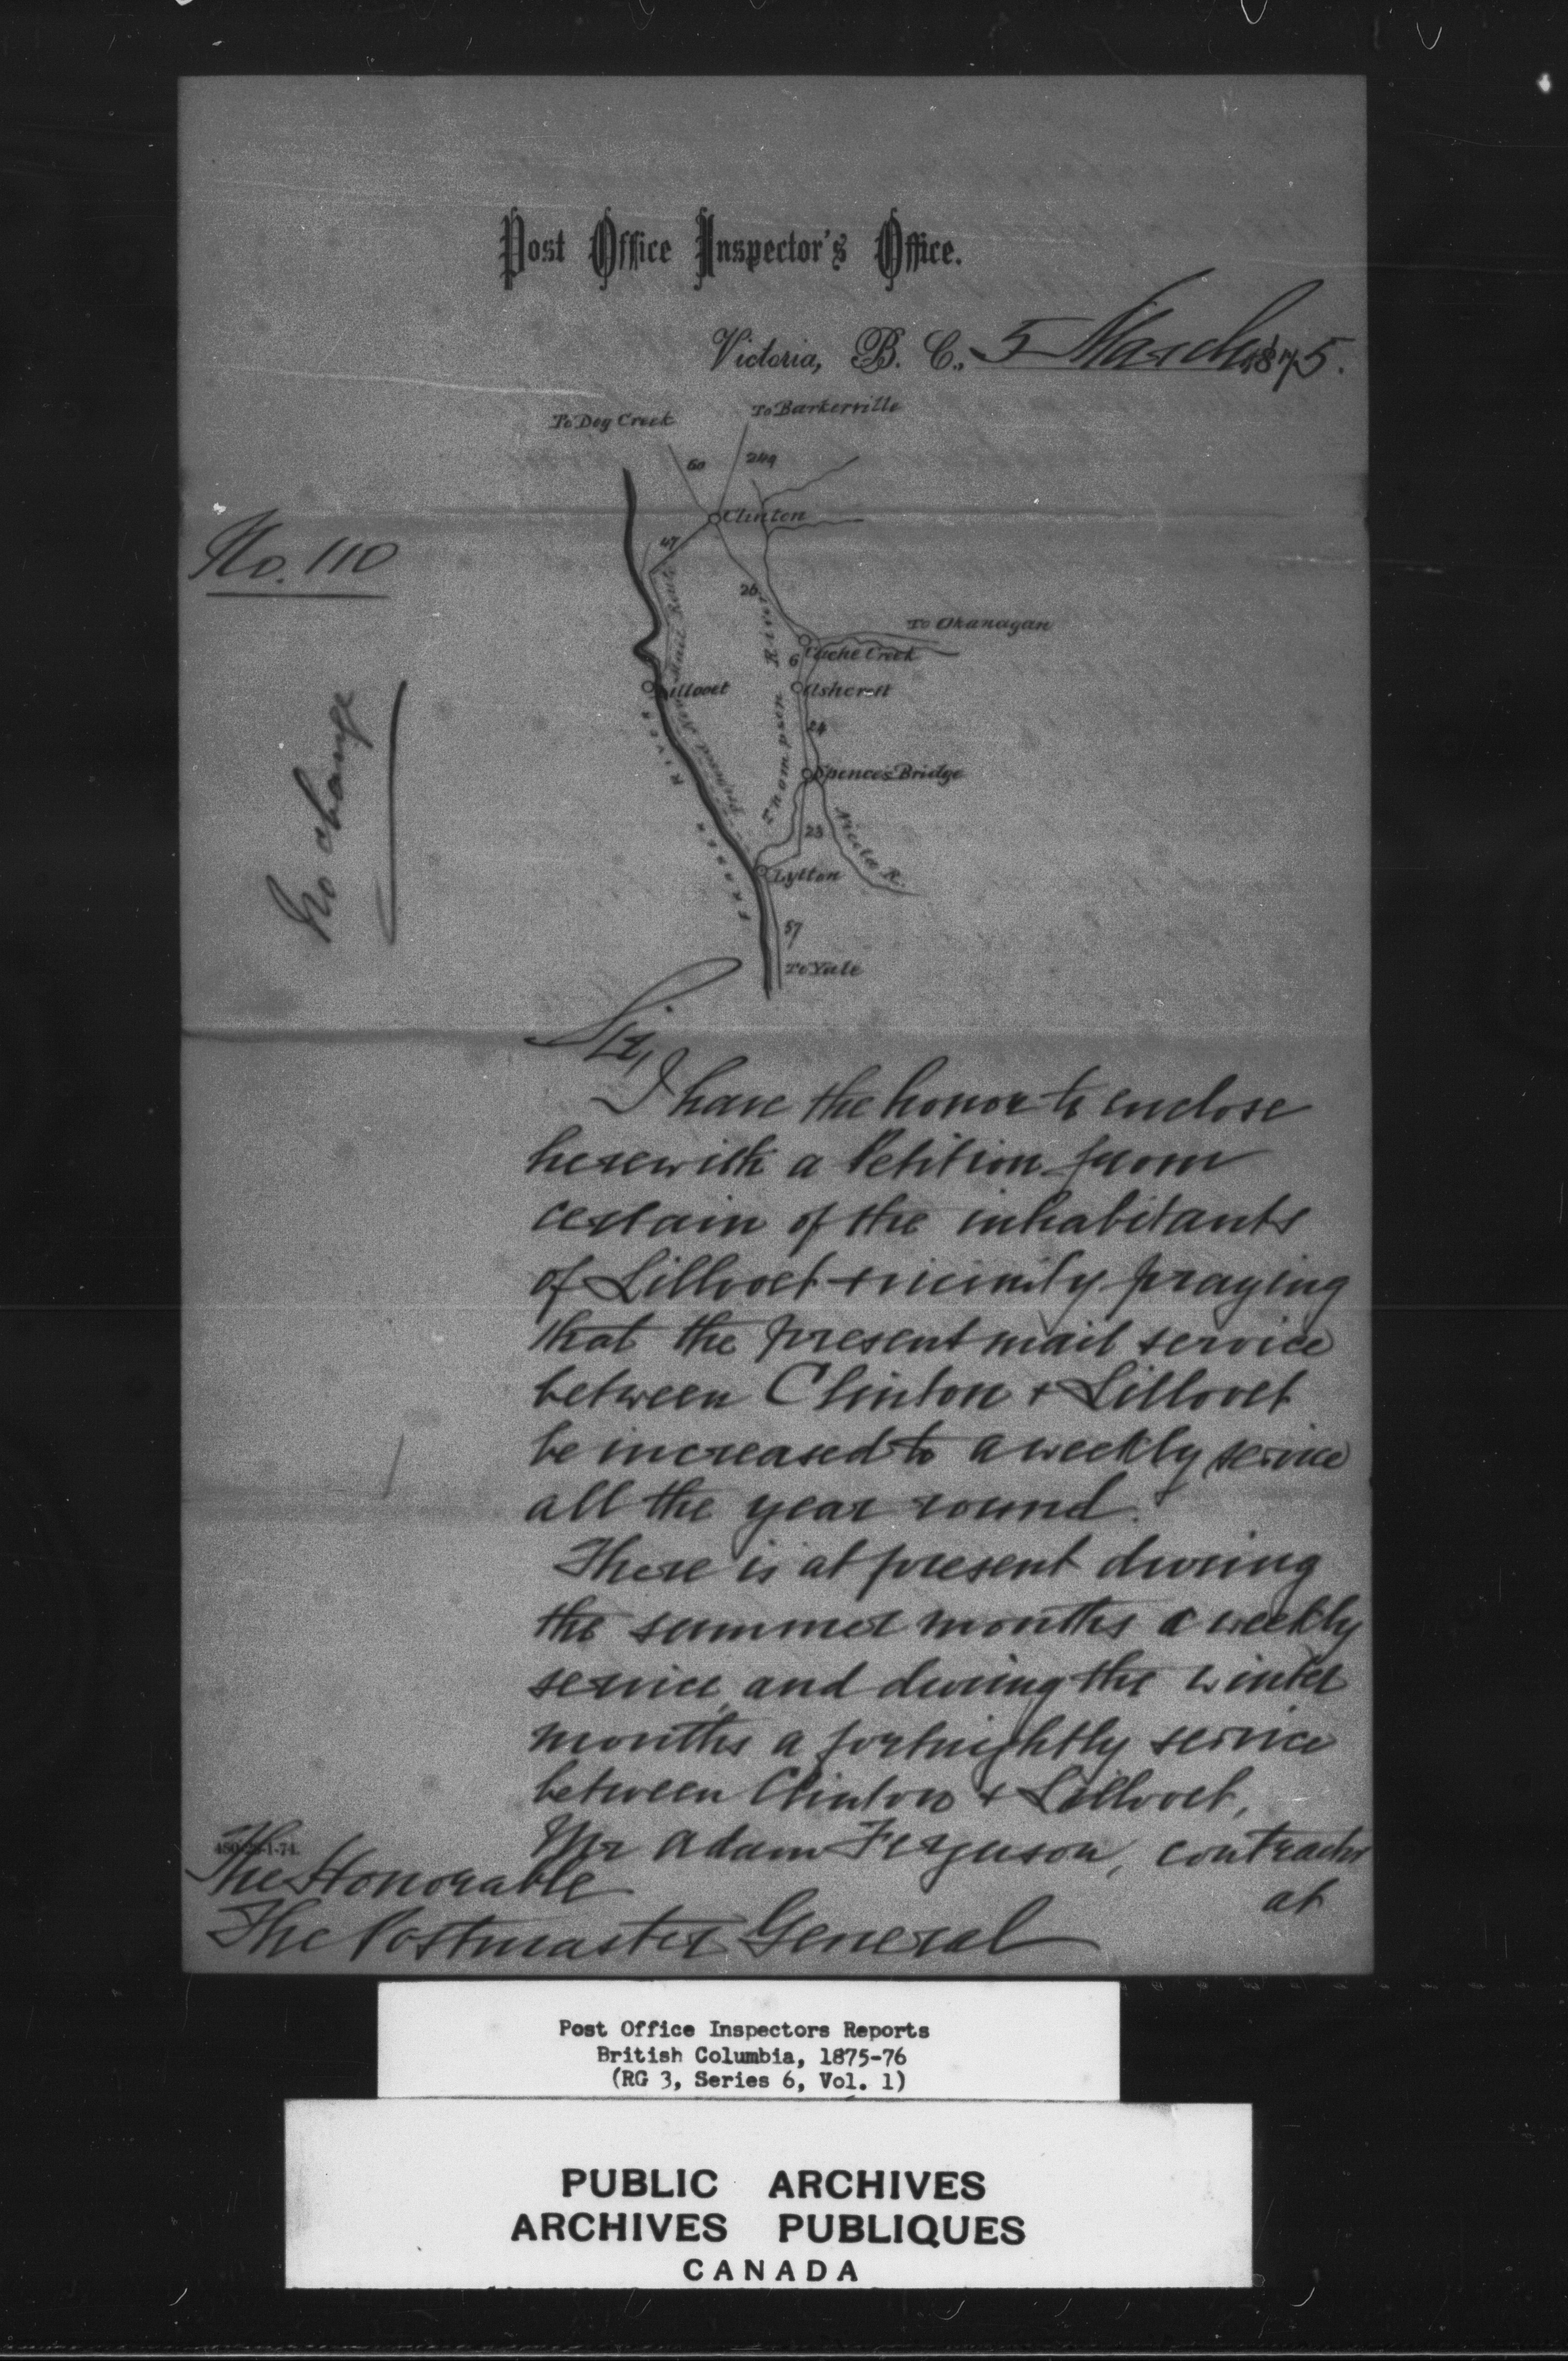 Post Office Inspector's Office.
Victoria, B. C., 5 March 1875.
To Dog Creek
To Barkerville
60
249
Clinton
No. 110
47
26
To Okanagan
Cache Creek
6
Lillooet
Ashcroft
Proposed New Mail Route
Thompson River
24
Spences Bridge
Fraser River
23
Nicola R.
Lytton
57
To Yale
No change
Sir,
I have the honor to enclose
herewith a Petition from
certain of the inhabitants
of Lillooet & vicinity praying
that the present mail service
between Clinton & Lillooet
be increased to a weekly service
all the year round.
There is at present during
the summer months a weekly
service, and during the winter
months a fortnightly service
between Clinton & Lillooet,
Mr Adam Ferguson, contractor
at
The Honorable
The Postmaster General
Post Office Inspectors Reports
British Columbia, 1875-76
(RG 3, Series 6, Vol. 1)
PUBLIC ARCHIVES
ARCHIVES PUBLIQUES
CANADA